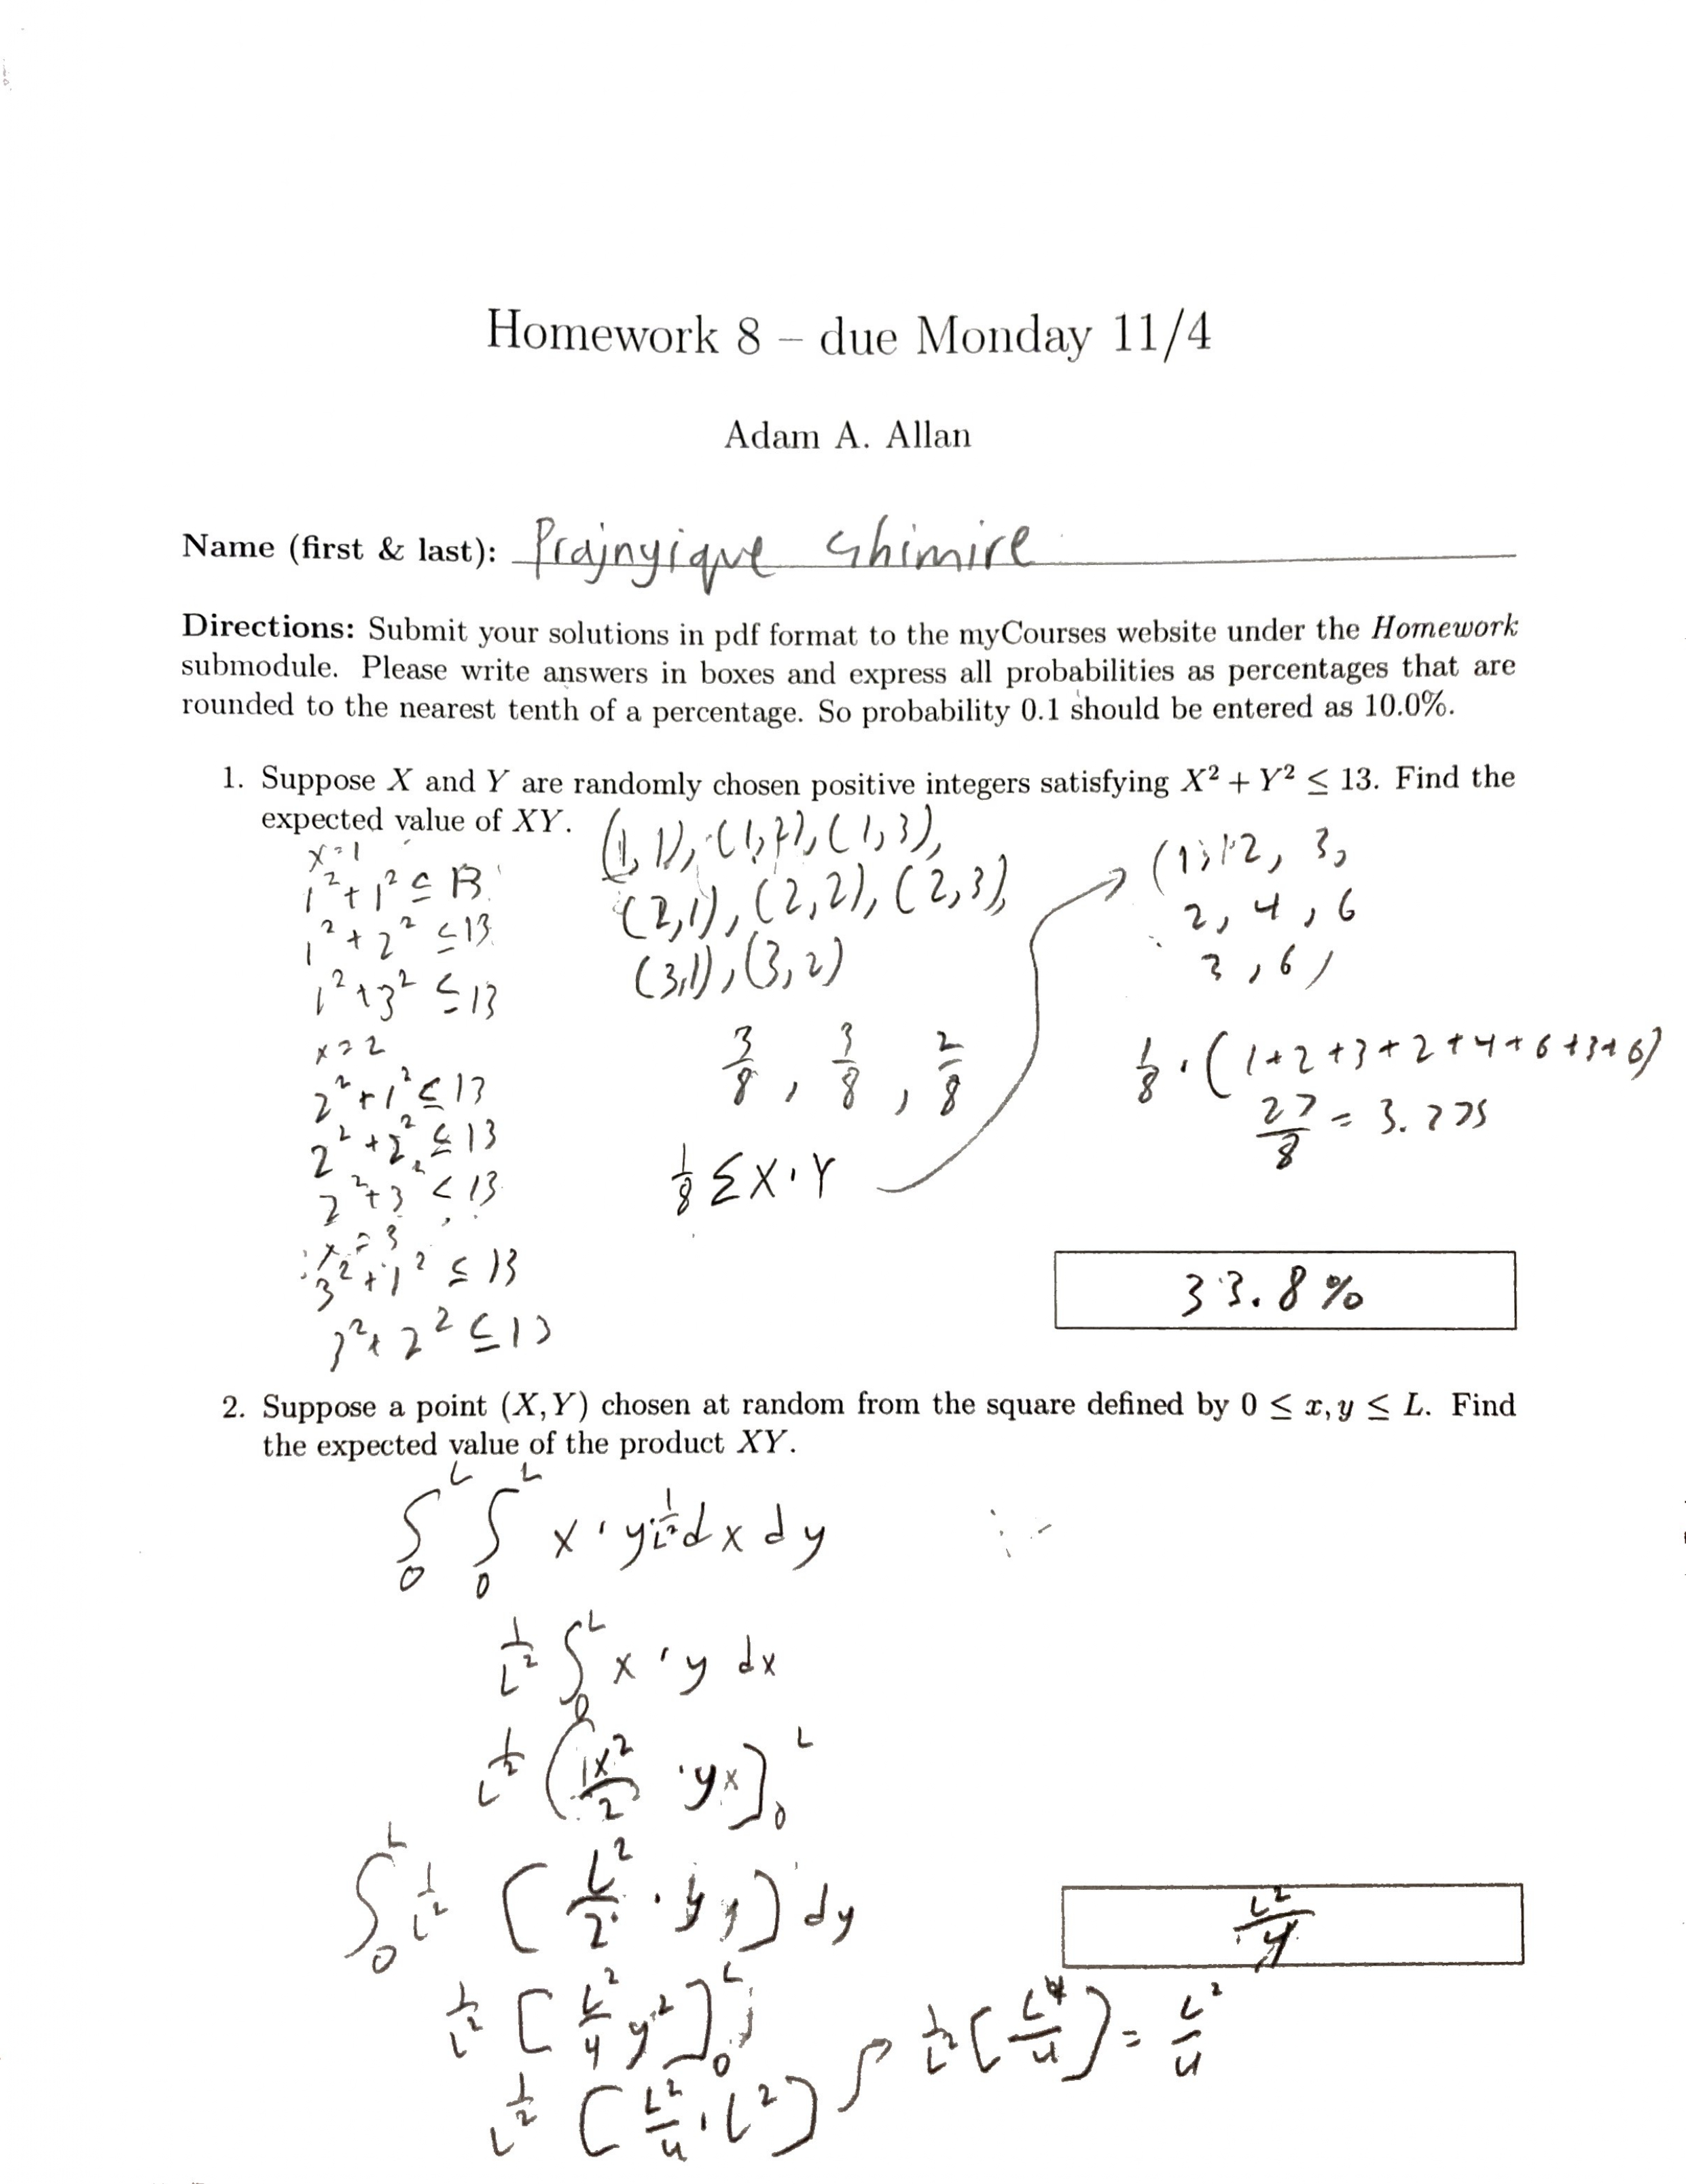 Homework 8 – due Monday 11/4
Adam A. Allan
Name (first & last): Prajnyique Ghimire
Directions: Submit your solutions in pdf format to the myCourses website under the Homework
submodule. Please write answers in boxes and express all probabilities as percentages that are
rounded to the nearest tenth of a percentage. So probability 0.1 should be entered as 10.0%.
1. Suppose X and Y are randomly chosen positive integers satisfying X² + Y² ≤ 13. Find the
expected value of XY.
x=1
1² + 1² ≤ 13
1² + 2² ≤ 13
1² + 3² ≤ 13
x = 2
2² + 1² ≤ 13
2² + 2² ≤ 13
2² + 3² < 13
x = 3
3² + 1² ≤ 13
3² + 2² ≤ 13
(1,1), (1,2), (1,3),
(2,1), (2,2), (2,3),
(3,1), (3,2)
3/8 , 3/8 , 2/8
1/8 Σ X · Y
(1, 2, 3,
2, 4, 6
3, 6)
1/8 · (1+2+3+2+4+6+3+6)
27/8 = 3.375
33.8%
2. Suppose a point (X, Y) chosen at random from the square defined by 0 ≤ x, y ≤ L. Find
the expected value of the product XY.
∫₀ᴸ ∫₀ᴸ x · y 1/L² dx dy
1/L² ∫₀ᴸ x · y dx
1/L² (1x²/2 · yx]₀ᴸ
∫₀ᴸ 1/L² [L²/2 · y] dy
1/L² [L²/4 y²]₀ᴸ
1/L² [L²/4 · L²]
1/L² [L⁴/4] = L²/4
L²/4